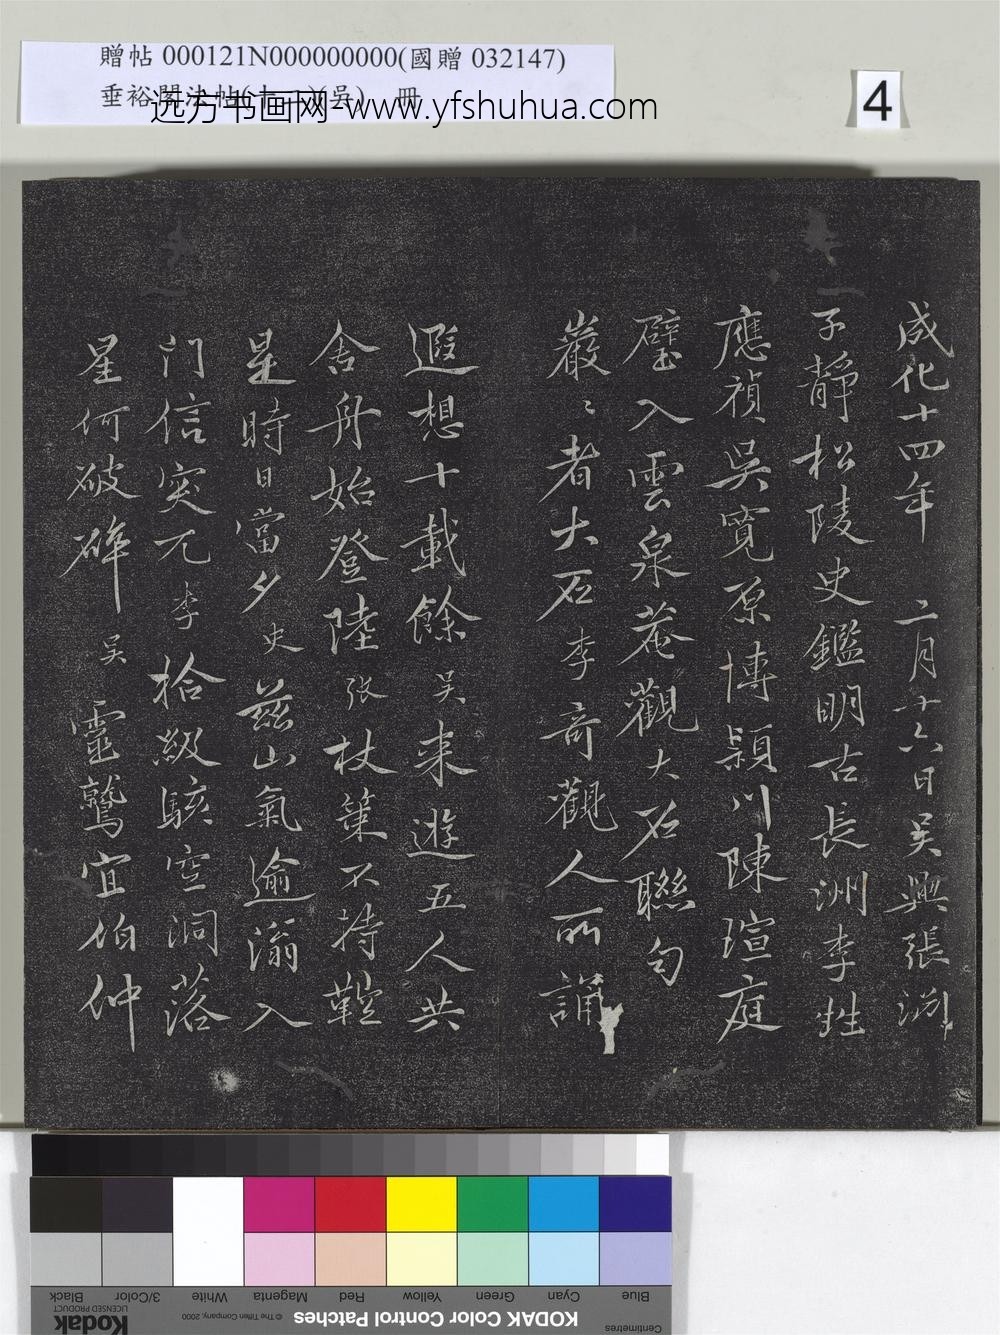 贈帖 000121N000000000(國贈 032147)
远方书画网-www.yfshuhua.com
4
成化十四年二月十六日吴興張淵
子靜松陵史鑑明古長洲李甡
應禎吴寬原博潁川陳瑄庭
璧入雲泉菴觀大石聯句
巖〻者大石李奇觀人所誦
遐想十載餘吴来遊五人共
舍舟始登陸张杖策不持鞚
星時日當夕史茲山氣逾滃入
门信突兀李拾級駭空洞落
星何破碎吴靈鷲宜伯仲
Blue Cyan Green Yellow Red Magenta White 3/Color Black
Centimetres
KODAK Color Control Patches
© The Tiffen Company, 2000
Kodak
LICENSED PRODUCT